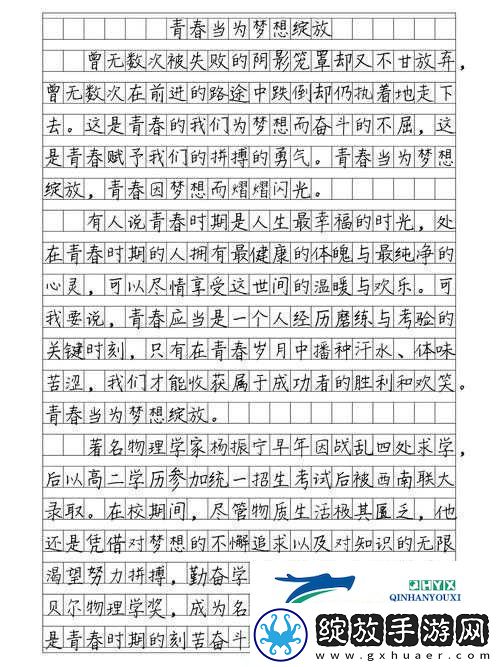 青春当为梦想绽放
曾无数次被失败的阴影笼罩却又不甘放弃，
曾无数次在前进的路途中跌倒却仍执着地走下
去。这是青春的我们为梦想而奋斗的不屈，这
是青春赋予我们的拼搏的勇气。青春当为梦想
绽放，青春因梦想而熠熠闪光。
有人说青春时期是人生最幸福的时光，处
在青春时期的人拥有最健康的体魄与最纯净的
心灵，可以尽情享受这世间的温暖与欢乐。可
我要说，青春应当是一个人经历磨练与考验的
关键时刻，只有在青春岁月中播种汗水、体味
苦涩，我们才能收获属于成功者的胜利和欢笑。
青春当为梦想绽放。
著名物理学家杨振宁早年因战乱四处求学，
后以高二学历参加统一招生考试后被西南联大
录取。在校期间，尽管物质生活极其匮乏，他
还是凭借对梦想的不懈追求以及对知识的无限
渴望努力拼搏，勤奋学
贝尔物理学奖，成为名
是青春时期的刻苦奋斗
QHYX
QINHANYOUXI
绽放手游网
gxhuaer.com